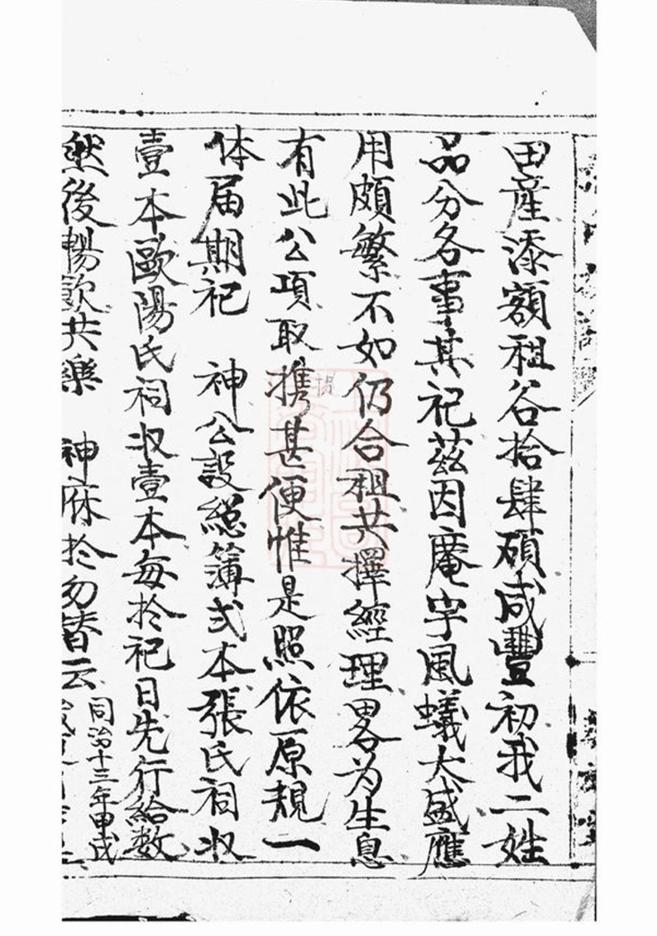 田產添額租谷拾肆碩咸豐初我二姓
品分各事其祀茲因庵宇風蟻大盛應
用頗繁不如仍合租共擇經理畧为生息
有此公項取携甚便惟是照依原規一
体届期祀　神公設總簿弍本張氏祠収
壹本歐陽氏祠収壹本每於祀日先行給数
然後暢飲共樂　神庥於勿替云
同治十三年甲戌